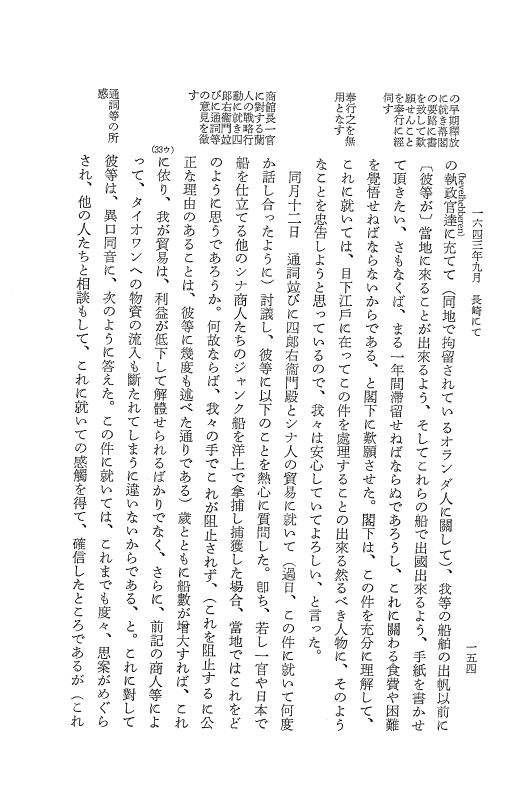 一六四三年九月　長崎にて
一五四
の早期釋放
に就き幕閣
の要路に書
を致して歎
願せんこと
を奉行に經
伺す
奉行之を無
用となす
商館長一官
に對する蘭
人の戰略行
動に就き四
郎右衞門竝
びに通詞等
の意見を徵
す
通詞等の所
感
の執政官達に充てて（同地で拘留されているオランダ人に關して）、我等の船舶の出帆以前に
(bevelhebberen)
〔彼等が〕當地に來ることが出來るよう、そしてこれらの船で出國出來るよう、手紙を書かせ
て頂きたい、さもなくば、まる一年間滯留せねばならぬであろうし、これに關わる食費や困難
を覺悟せねばならないからである、と閣下に歎願させた。閣下は、この件を充分に理解して、
これに就いては、目下江戶に在ってこの件を處理することの出來る然るべき人物に、そのよう
なことを忠告しようと思っているので、我々は安心していてよろしい、と言った。
同月十二日　通詞竝びに四郎右衞門殿とシナ人の貿易に就いて（過日、この件に就いて何度
か話し合ったように）討議し、彼等に以下のことを熱心に質問した。卽ち、若し一官や日本で
船を仕立てる他のシナ商人たちのジャンク船を洋上で拿捕し捕獲した場合、當地ではこれをど
のように思うであろうか。何故ならば、我々の手でこれが阻止されず、（これを阻止するに公
正な理由のあることは、彼等に幾度も述べた通りである）歲とともに船數が增大すれば、これ
(33ウ)
に依り、我が貿易は、利益が低下して解體せられるばかりでなく、さらに、前記の商人等によ
って、タイオワンへの物資の流入も斷たれてしまうに違いないからである、と。これに對して
彼等は、異口同音に、次のように答えた。この件に就いては、これまでも度々、思案がめぐら
され、他の人たちと相談もして、これに就いての感觸を得て、確信したところであるが（これ